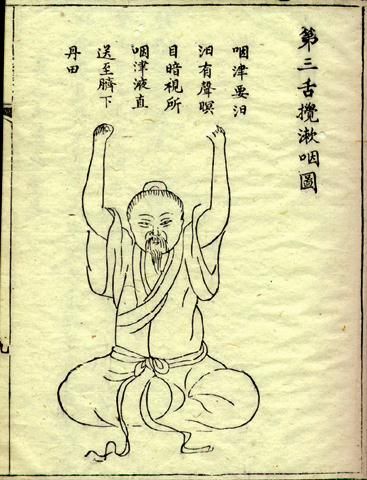 第三舌攪漱咽圖
咽津要汩
汩有聲瞑
目暗視所
咽津液直
送至臍下
丹田